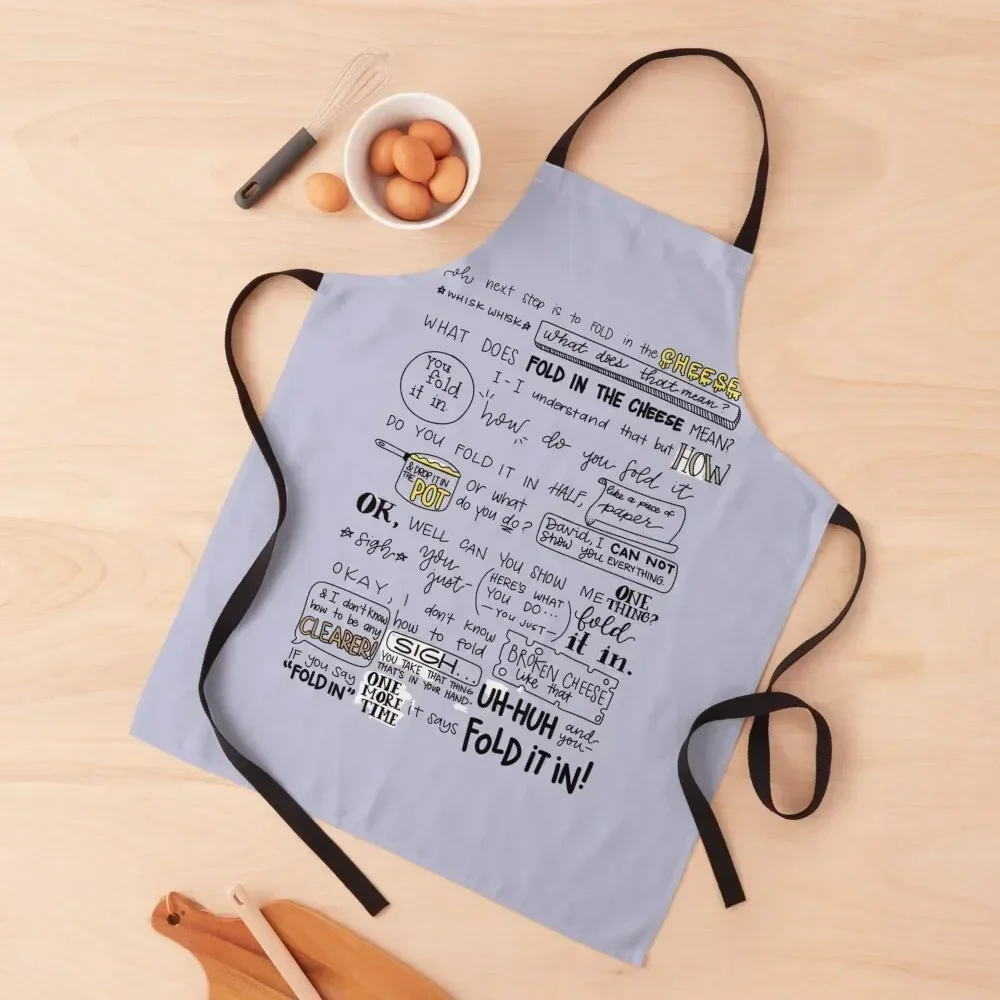 oh next step is to FOLD in the CHEESE
*WHISK WHISK* What does that mean?
WHAT DOES FOLD IN THE CHEESE MEAN?
You fold it in
I-I understand that but HOW
how do you fold it
DO YOU FOLD IT IN HALF, like a piece of paper
& DROP IT IN THE POT or what do you do?
David, I CAN NOT Show you EVERYTHING.
OK, WELL CAN YOU SHOW ME ONE THING?
*sigh* you just-
HERE'S WHAT YOU DO...
-YOU JUST-
fold it in.
OKAY, I don't know how to fold
BROKEN CHEESE like that
& I don't know how to be any CLEARER!
SIGH...
YOU TAKE THAT THING THAT'S IN YOUR HAND-
UH-HUH and you-
IF YOU SAY "FOLD IN" ONE MORE TIME
it says FOLD IT IN!